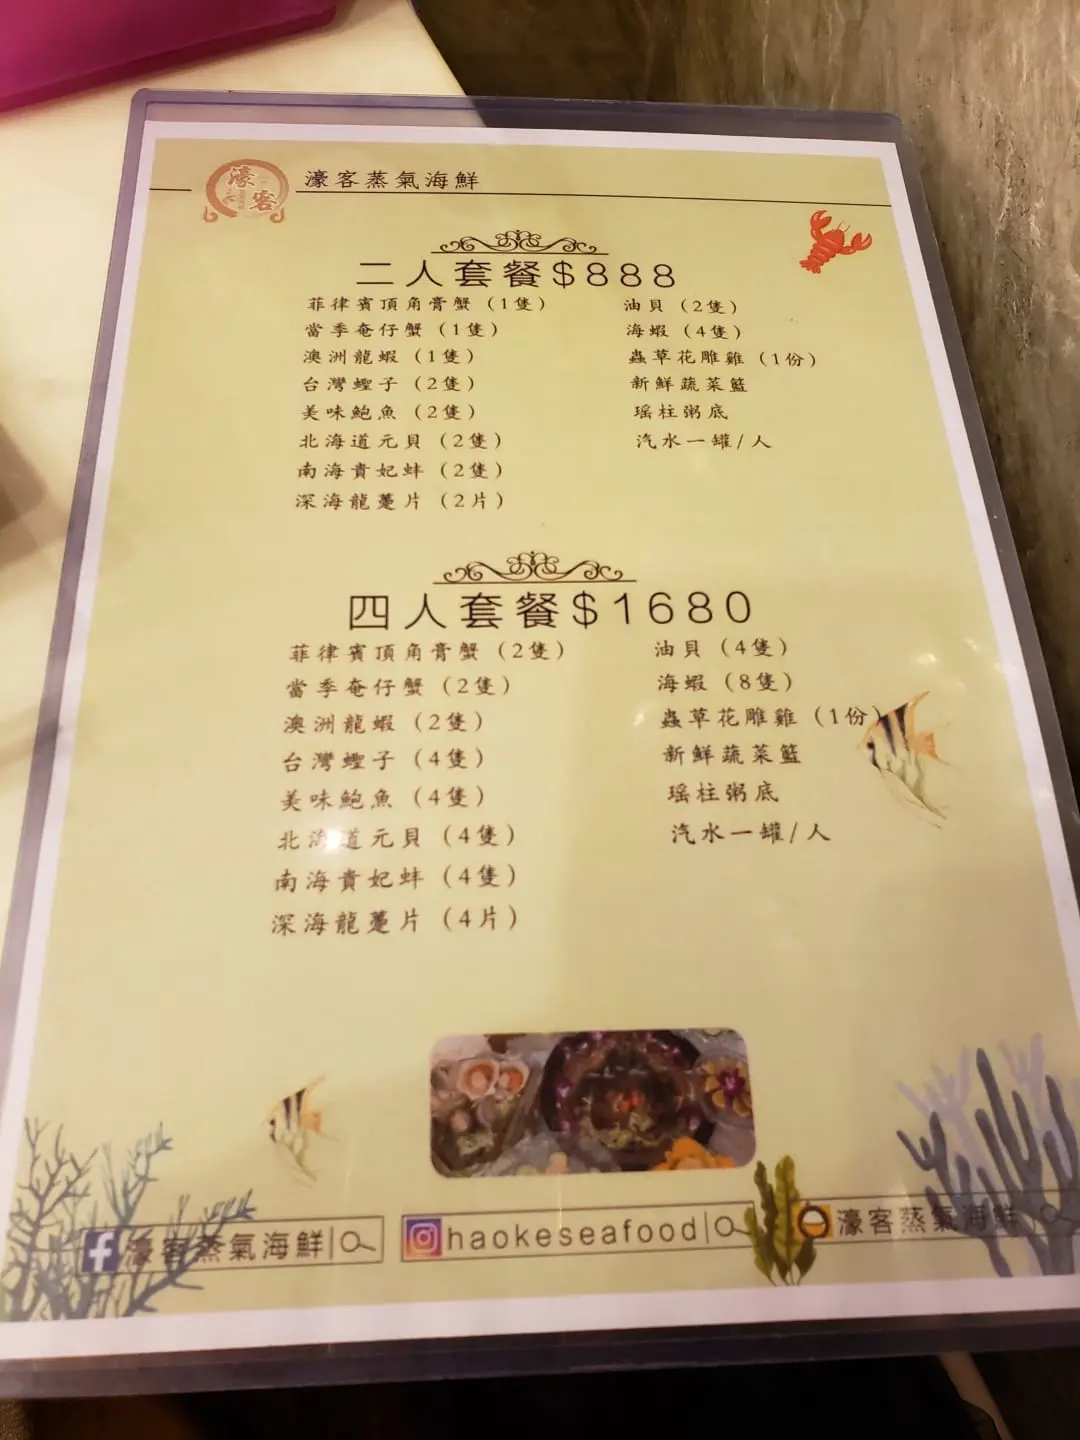 濠客
濠客蒸氣海鮮
二人套餐$888
菲律賓頂角膏蟹（1隻）
當季奄仔蟹（1隻）
澳洲龍蝦（1隻）
台灣蟶子（2隻）
美味鮑魚（2隻）
北海道元貝（2隻）
南海貴妃蚌（2隻）
深海龍躉片（2片）
油貝（2隻）
海蝦（4隻）
蟲草花雕雞（1份）
新鮮蔬菜籃
瑶柱粥底
汽水一罐/人
四人套餐$1680
菲律賓頂角膏蟹（2隻）
當季奄仔蟹（2隻）
澳洲龍蝦（2隻）
台灣蟶子（4隻）
美味鮑魚（4隻）
北海道元貝（4隻）
南海貴妃蚌（4隻）
深海龍躉片（4片）
油貝（4隻）
海蝦（8隻）
蟲草花雕雞（1份）
新鮮蔬菜籃
瑶柱粥底
汽水一罐/人
濠客蒸氣海鮮
haokeseafood
濠客蒸氣海鮮